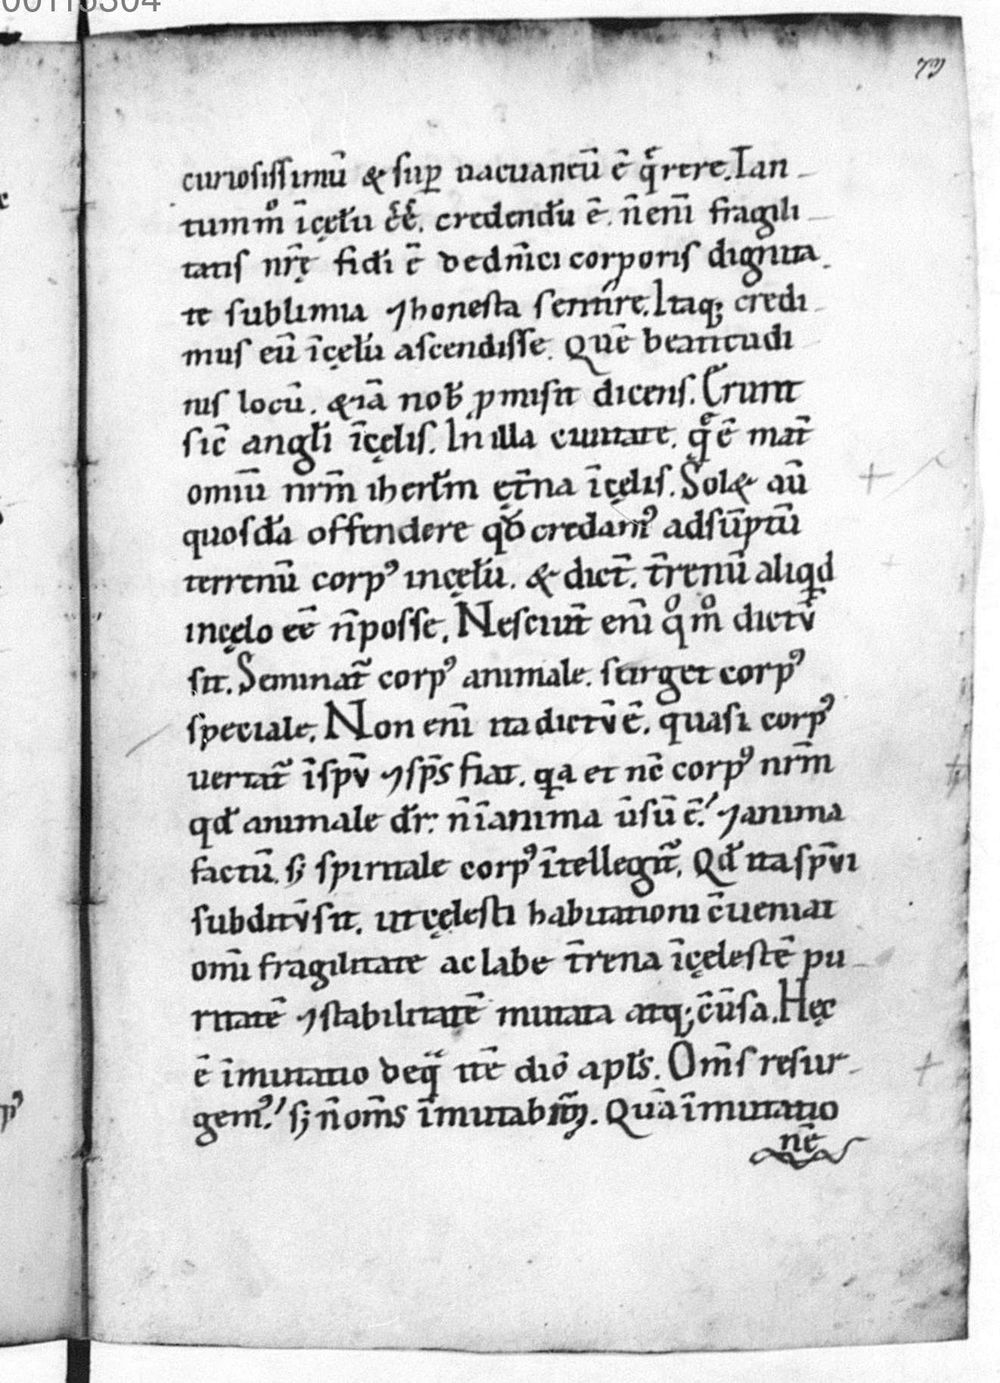 curiosissimū & suꝑ uacuaneū ē q̊rere. Tan
tum m̊ ī cęlū ēē. credendū ē. n̄ eni̅ fragili
tatis nr̄ę fidi ē de dn̄ici corporis dignita
te sublimia ⁊ honesta sentire. Itaq; credi
mus eū ī cęlū ascendisse. Quē beatitudi
nis locū. & iā nob̄ ꝓmisit dicens. Erunt
sic̄ angl̄i ī cęlis. In illa ciuitate. q̨ ē mat̄
omiū nrm̄ ihertm̄ ęt̄na ī cęlis. Sol& aū
quosdā offendere qđ credamꝰ adsūptū
terrenū corpꝰ in cęlū. & dict̄. t̄renū aliqd
in cęlo eē n̄ posse. Nesciun̄t eni̅ q̊m̊ dictv̄
sit. Seminat̄ corpꝰ animale. surget corpꝰ
speciale. Non eni̅ ita dictv̄ ē. quasi corpꝰ
uertat̄ ī spv̄ ⁊ sps̄ fiat. qa et nc̄ corpꝰ nrm̄
qđ animale dr̄. n̄ ī anima ūsū ē. ⁊ anima
factū. s; spiritale corpꝰ ītellegit̄. Qđ ita spv̄i
subditv̄ sit. ut cęlesti habitationi c̄ueniat
omi̅ fragilitate ac labe t̄rena ī cęlestē pu
ritatē ⁊ stabilitatē mutata atq; c̄ūsa. Hęc
ē īmutatio de q̄ itē dic̄ apls̄. Om̄s resur
gemꝰ. s; n̄ om̄s īmutabim̄. Quā īmutatio
nē